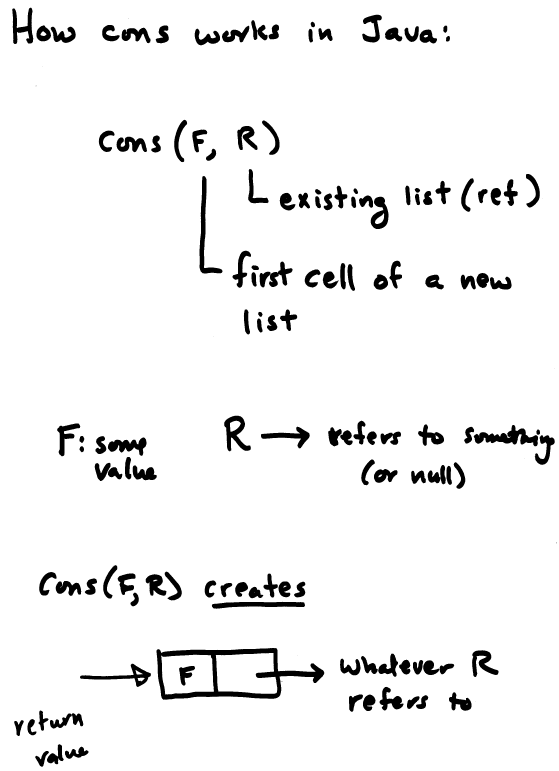 How cons works in Java:
Cons (F, R)
existing list (ref)
first cell of a new
list
F: some
value
R → refers to something
(or null)
Cons(F,R) creates
F
whatever R
refers to
return
value